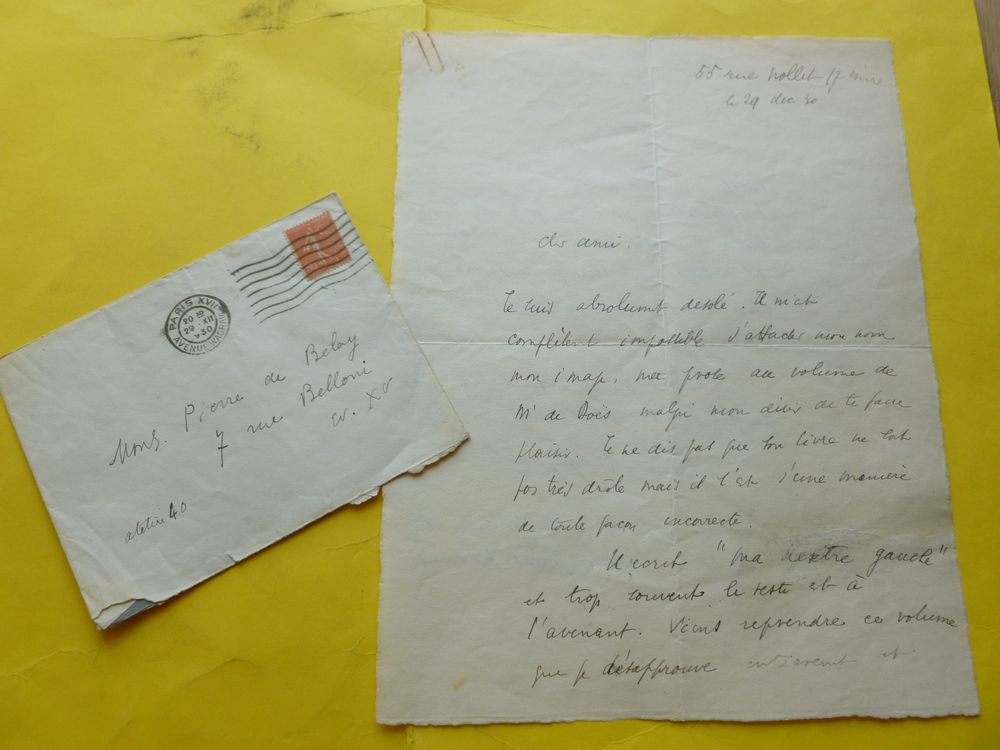 PARIS XVII
20 30
29 · XII
1930
AVENUE WAGRAM
Mons. Pierre de Belay
7 rue Belloni
ev. XV
atelier 40
55 rue Nollet 17 eme
le 29 dec 30
cher ami.
Je suis absolument desolé. Il m'est
complètent impossible d'attacher mon nom
mon image, ma prose au volume de
Mr de malgré mon désir de te faire
plaisir. Je ne dis pas que son livre ne soit
pas très drôle mais il l'est d'une maniere
de toute façon incorrecte.
Il ecrit "ma dextre gauche"
et trop souvent le reste est à
l'avenant. Viens reprendre ce volume
que je désapprouve et